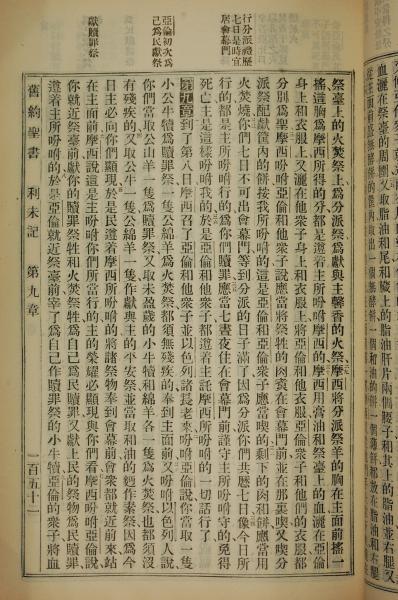 血灑在祭臺的周圍又取脂油和尾和臟上的脂油肝片兩個腰子和其上的脂油並右腿又
從主面前盛無酵餅的筐內取出一個無酵餅一個和油的餅一個薄餅都放在脂油和右腿
行分派禮歷
七日是時宜
居會幕門
亞倫初次爲
己爲民獻祭
獻贖罪祭
祭臺上的火焚祭上爲分派祭爲獻與主馨香的火祭摩西將分派祭羊的胸在主面前搖一
搖這胸爲摩西所得的分都是遵着主所吩咐摩西的摩西用膏油和祭臺上的血灑在亞倫
身上和衣服上又灑在他衆子身上和他衆子衣服上將亞倫和他衣服亞倫衆子和他們的衣服都
分別爲聖摩西吩咐亞倫和他衆子說應當將祭牲的肉煑在會幕門前並在那裏喫又喫分
派祭配獻筐內的餅按我所吩咐的這是亞倫和亞倫衆子應當喫的剩下的肉和餅應當用
火焚燒你們七日不可出會幕門等到分派的日子滿了因爲分派你們共歷七日像今日所
行的都是主所吩咐行的爲你們贖罪你們應當七晝夜住在會幕門前謹守主所吩咐守的免得
死亡主是這樣吩咐我的於是亞倫和他衆子都遵着主託摩西所吩咐的一切話行了
第九章到了第八日摩西召了亞倫和他衆子並以色列諸長老來吩咐亞倫說你當取一隻
小公牛犢爲贖罪祭一隻公綿羊爲火焚祭都須無殘疾的奉到主面前又吩咐以色列人說
你們當取公山羊一隻爲贖罪祭又取未盈歲的小牛犢和綿羊各一隻爲火焚祭也都須沒
有殘疾的又取公牛一隻公綿羊一隻作獻與主的平安祭並當取和油的麪作素祭因爲今
日主必向你們顯現於是民遵着摩西所吩咐的將諸祭物奉到會幕前會衆都就近前來站
在主面前摩西說這是主所吩咐你們所當行的主的榮耀必顯現與你們看摩西吩咐亞倫說
你就近祭臺前獻你的贖罪祭牲和火焚祭牲爲自己和民贖罪又獻上民的祭物爲民贖罪
遵着主所吩咐的於是亞倫就近祭臺前宰了爲自己作贖罪祭的小牛犢亞倫的衆子將血
舊約聖書 利未記 第九章 一百五十一